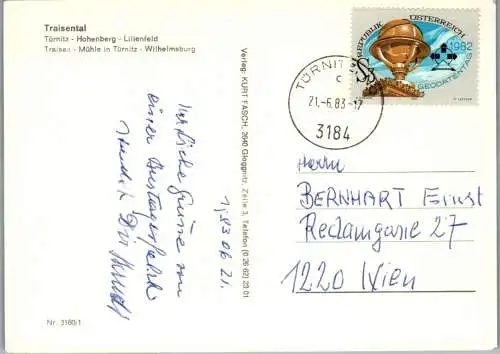 Traisental
Türnitz - Hohenberg - Lilienfeld
Traisen - Mühle in Türnitz - Wilhelmsburg
Verlag: KURT FASCH, 2640 Gloggnitz, Zeile 3, Telefon (0 26 62) 23 01
REPUBLIK ÖSTERREICH
S3
1982
GEODÄTENTAG
TÜRNITZ
c
21.-6.83-17
3184
Herrn
BERNHART Ernst
Reclamgasse 27
1220 Wien
1983 06 21.
Herzliche Grüße von
einer
Nr. 3160/1